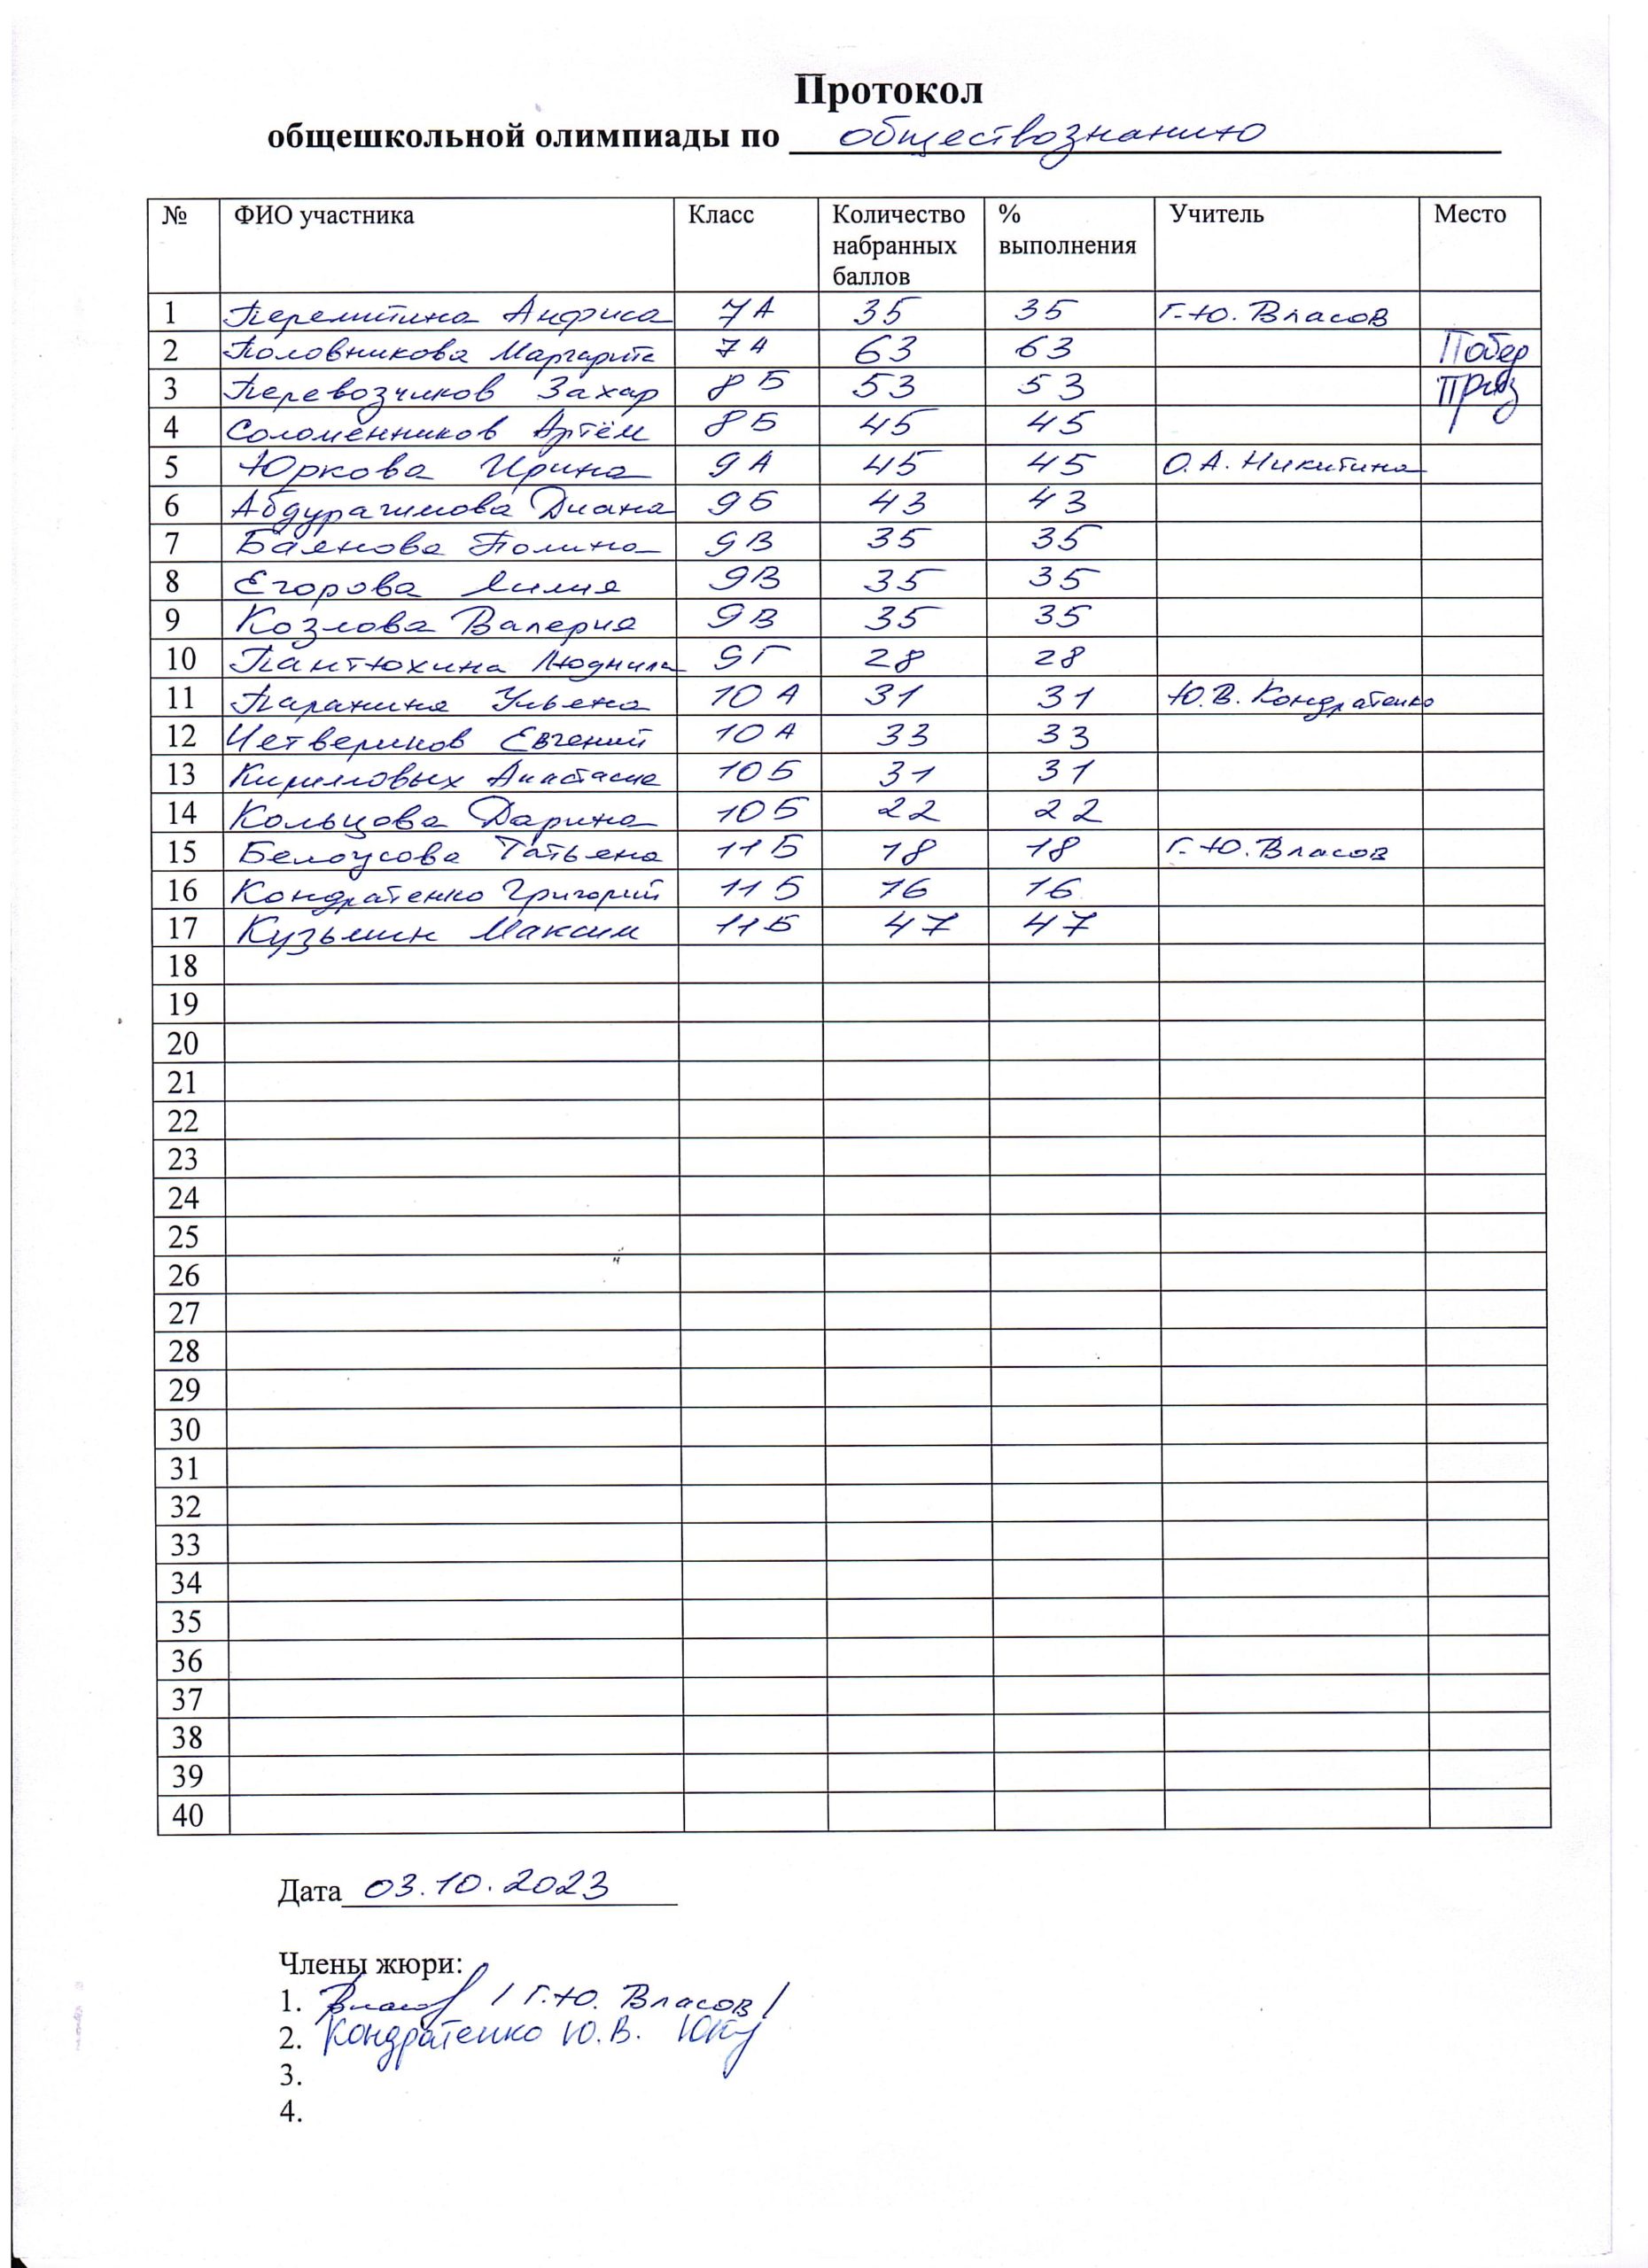 Протокол
общешкольной олимпиады по обществознанию
№ ФИО участника Класс Количество набранных баллов % выполнения Учитель Место
1 Перемитина Анфиса 7А 35 35 Г.Ю. Власов
2 Половникова Маргарита 7А 63 63 Побер
3 Перевозчиков Захар 8Б 53 53 Приз
4 Соломенников Артём 8Б 45 45
5 Юркова Ирина 9А 45 45 О.А. Никитина
6 Абдурагимова Диана 9Б 43 43
7 Баянова Полина 9В 35 35
8 Егорова Лилия 9В 35 35
9 Козлова Валерия 9В 35 35
10 Пантюхина Людмила 9Г 28 28
11 Паранина Ульяна 10А 31 31 Ю.В. Кондратенко
12 Четвериков Евгений 10А 33 33
13 Кирилловых Анастасия 10Б 31 31
14 Кольцова Дарина 10Б 22 22
15 Белоусова Татьяна 11Б 18 18 Г.Ю. Власов
16 Кондратенко Григорий 11Б 16 16
17 Кузьмин Максим 11Б 47 47
18
19
20
21
22
23
24
25
26
27
28
29
30
31
32
33
34
35
36
37
38
39
40
Дата 03.10.2023
Члены жюри:
1. / Г.Ю. Власов /
2. Кондратенко Ю.В.
3.
4.